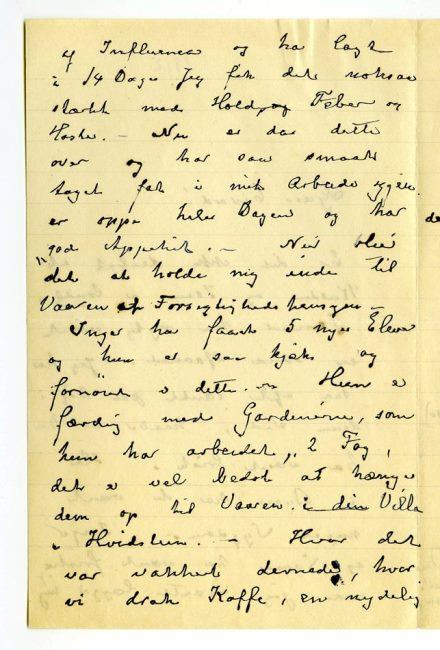 af Influenza og har lagt
i 14 Dage Jeg fik det noksaa
stærkt med Hold, og Feber og
Hoste. – Nu er da dette
over og har saa smaat
taget fat i mit Arbeide igjen.
er oppe hele Dagen og har
god Appetit. – Nu blir
det at holde mig inde til
Vaaren af Forsigtighedshensyn –
Inger har faaet 5 nye Elever
og hun er saa kjæk og
fornöiet i dette. – Hun er
færdig med Gardinerne, som
hun har arbeidet, 2 Fag,
det er vel bedst at hænge
dem op til Vaaren i din Villa
i Hvidsten. – Hvor det
var vakkert dernede, hvor
vi drak Kaffe, en nydelig